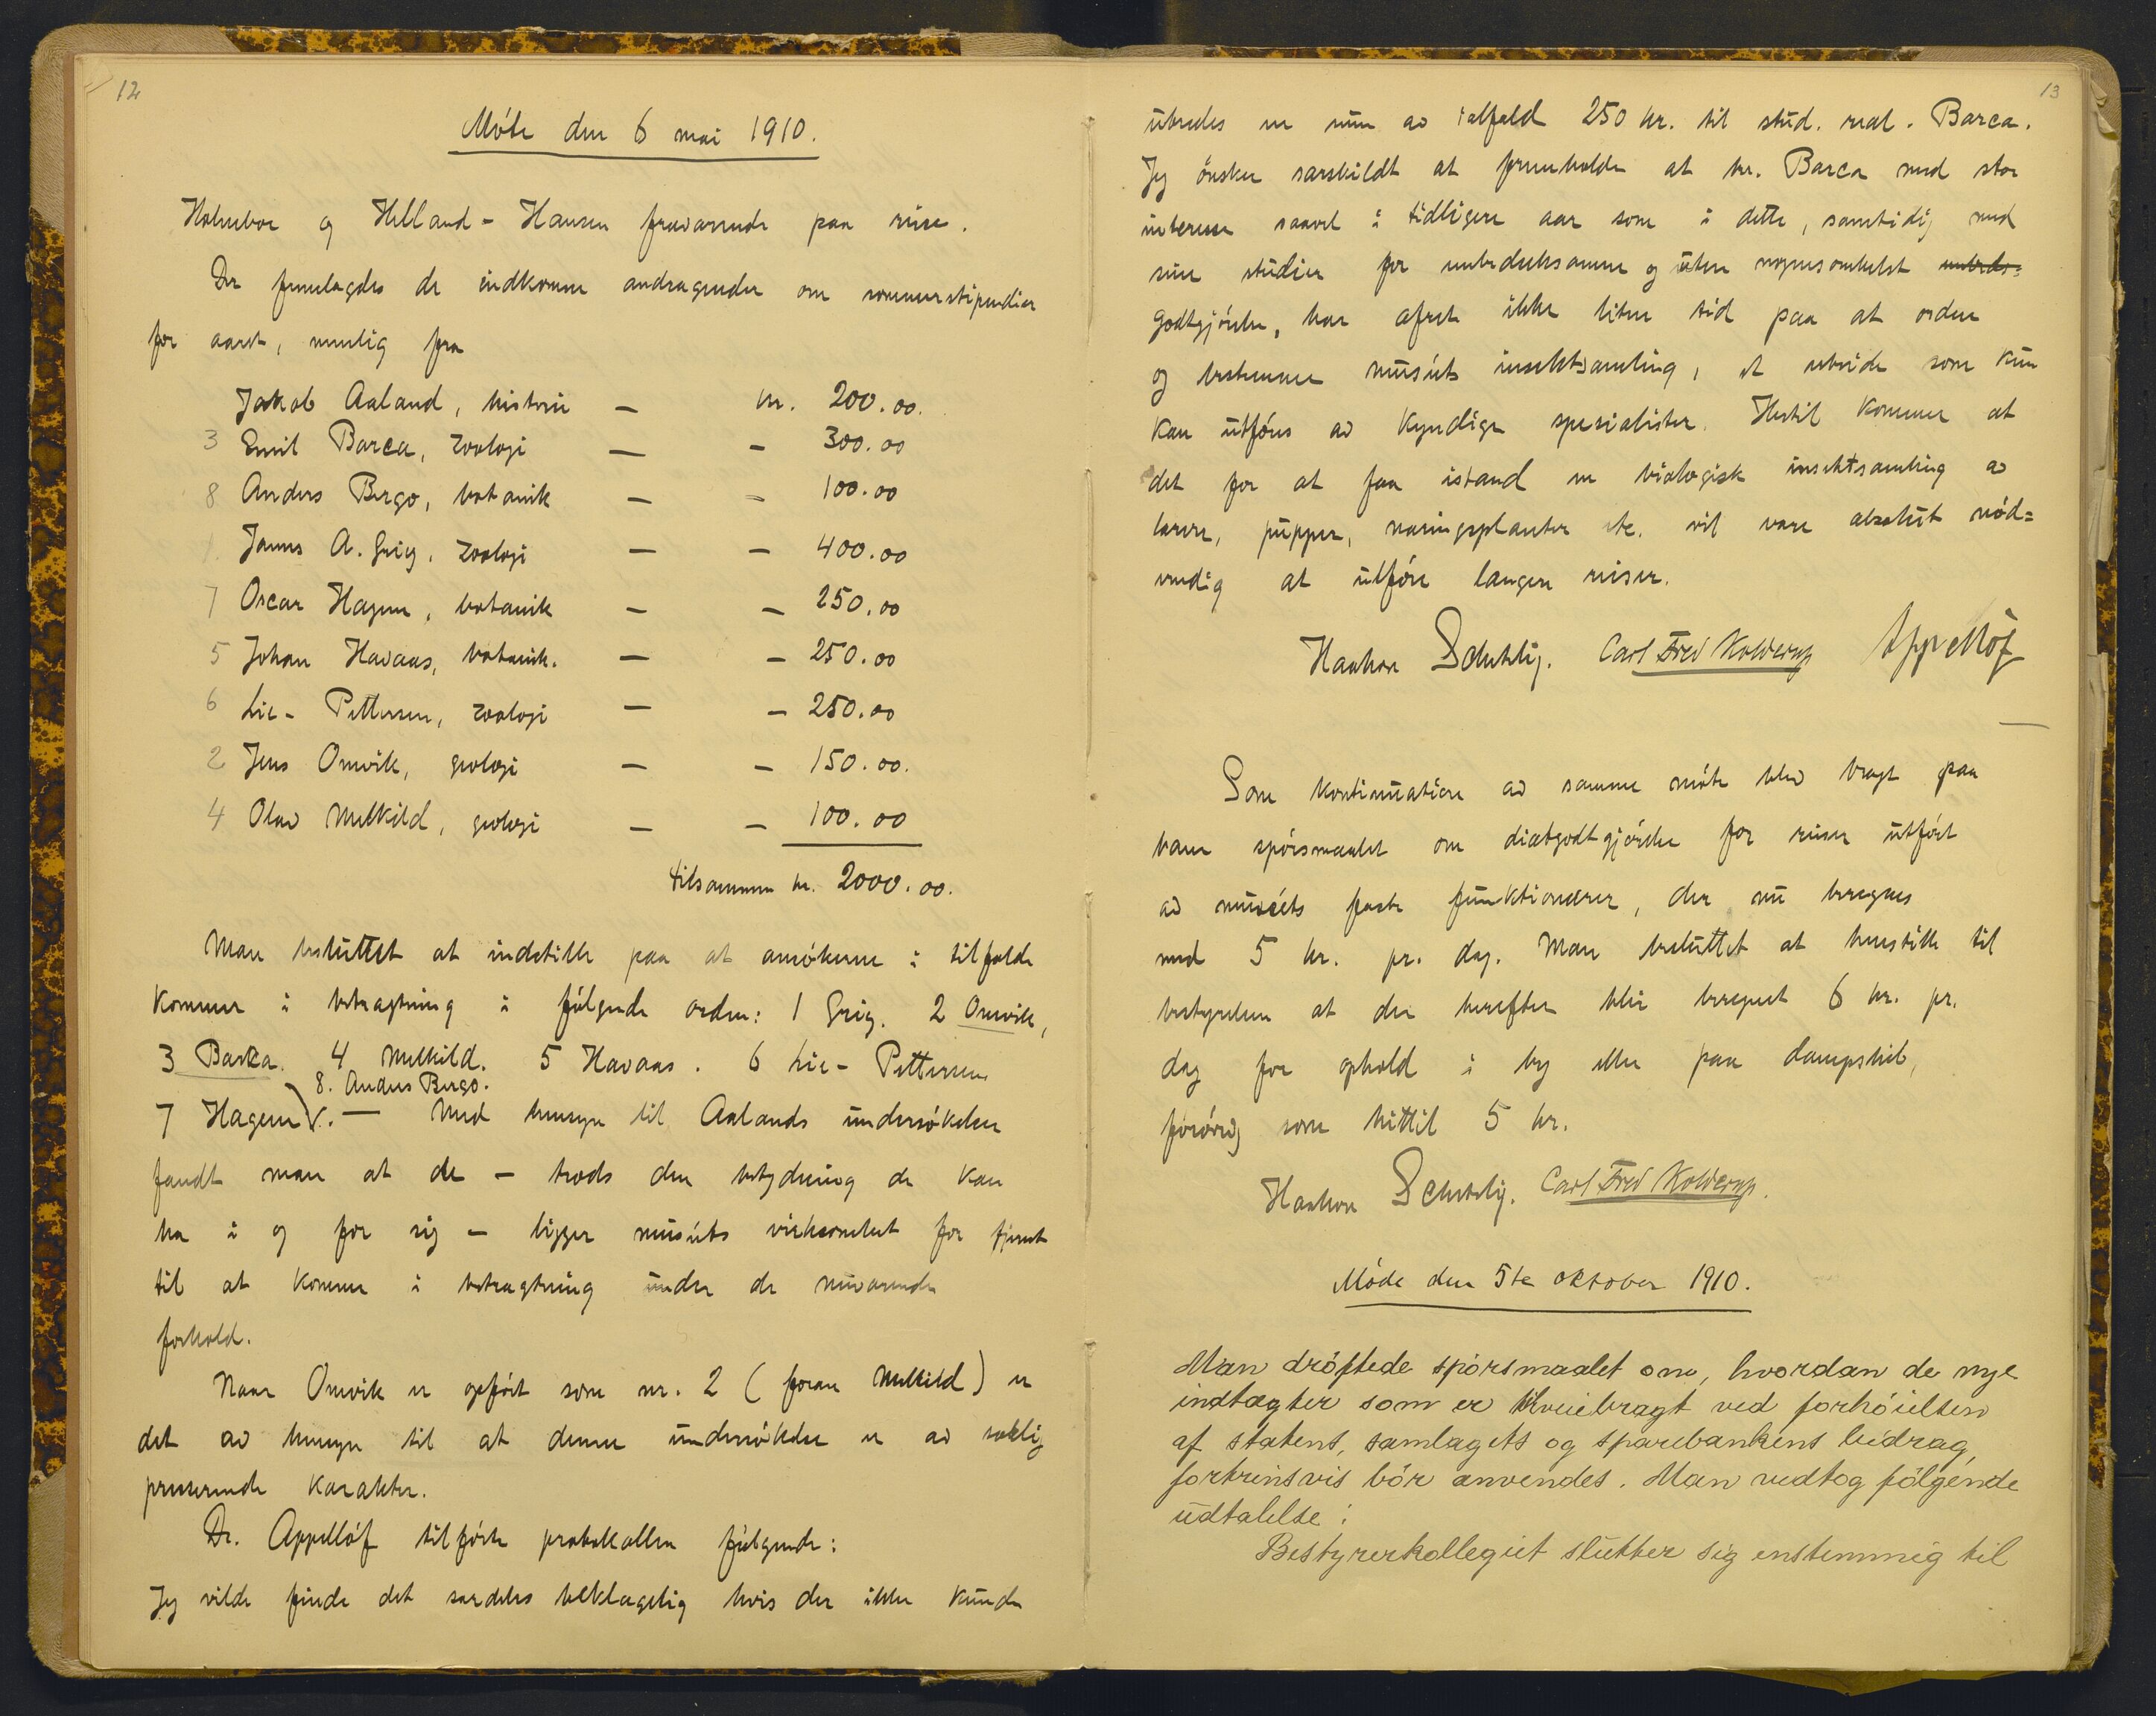 12
Möte den 6 mai 1910.
Holmboe og Helland-Hansen fraværende paa reise.
Der fremlagdes de indkomne andragender om sommerstipendier
for aaret, nemlig fra
Jakob Aaland, historie — kr. 200.00.
3 Emil Barca, zoologi — – 300.00
8 Anders Bergo, botanik — – 100.00
1. James A. Grieg, zoologi — – 400.00
7 Oscar Hagem, botanik — – 250.00
5 Johan Havaas, botanik. — – 250.00
6 Lie-Pettersen, zoologi — – 250.00
2 Jens Omvik, geologi — – 150.00.
4 Olav Melkild, geologi — – 100.00
tilsammen kr. 2000.00.
Man besluttet at indstille paa at ansökerne i tilfælde
kommer i betragtning i fölgende orden: 1 Grieg. 2 Omvik,
3 Barka. 4 Melkild. 5 Havaas. 6 Lie-Pettersen
8. Anders Bergo.
7 Hagem. — Med hensyn til Aalands undersökelser
fandt man at de — trods den betydning de kan
ha i og for sig — ligger museets virksomhet for fjernt
til at komme i betragtning under de nuværende
forhold.
Naar Omvik er opfört som nr. 2 (foran Melkild) er
det av hensyn til at denne undersökelse er av saklig
presserende karakter.
Dr. Appellöf tilförte protokollen fölgende:
Jeg vilde finde det særdeles beklagelig hvis der ikke kunde
13
utredes en sum av ialfald 250 kr. til stud. real. Barca.
Jeg önsker særskildt at fremholde at hr. Barca med stor
interesse saavel i tidligere aar som i dette, samtidig med
sine studier for embedseksamen og uten nogensomhelst embeds-
godtgjörelse, har ofret ikke liten tid paa at ordne
og bestemme museets insektsamling, et arbeide som kun
kan utföres av kyndige spesialister. Hertil kommer at
det for at faa istand en biologisk insektsamling av
larver, pupper, næringsplanter etc. vil være absolut nöd=
vendig at utföre længere reiser.
Haakon Schetelig. Carl Fred Kolderup Appellöf
Som kontinuation av samme möte blev bragt paa
bane spörsmaalet om diætgodtgjörelse for reiser utfört
av museets faste funktionærer, der nu beregnes
med 5 kr. pr. dag. Man besluttet at henstille til
bestyrelsen at der herefter blir beregnet 6 kr. pr.
dag for ophold i by eller paa dampskib,
forövrig som hittil 5 kr.
Haakon Schetelig. Carl Fred Kolderup.
Möde den 5te oktober 1910.
Man dröftede spörsmaalet om, hvordan de nye
indtægter som er tilveiebragt ved forhöielsen
af statens, samlagets og sparebankens bidrag,
fortrinsvis bör anvendes. Man vedtog fölgende
udtalelse:
Bestyrerkollegiet slutter sig enstemmig til